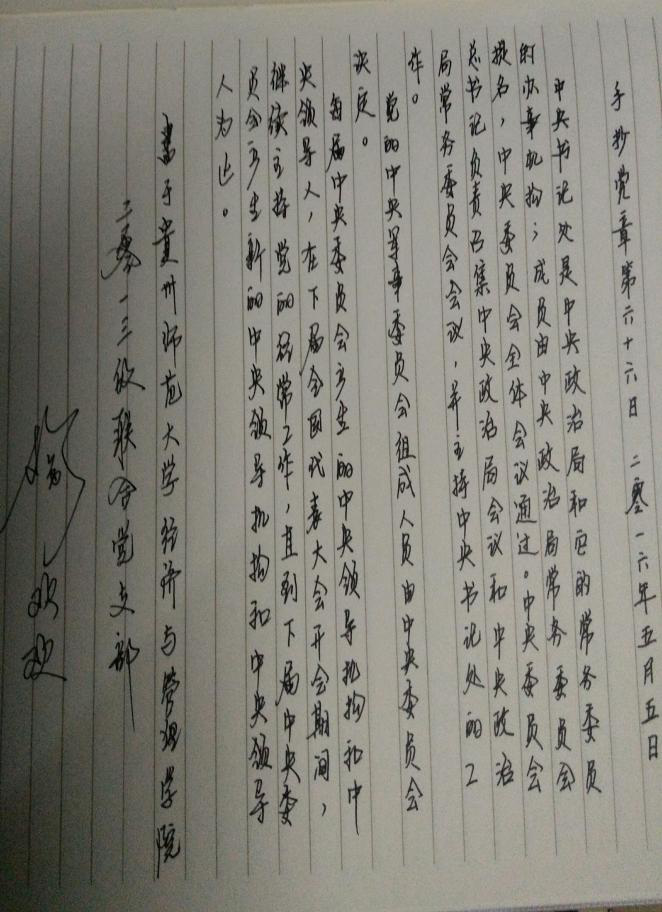 手抄党章第六十六日 二零一六年五月五日
中央书记处是中央政治局和它的常务委员
会的办事机构；成员由中央政治局常务委员会
提名，中央委员会全体会议通过。中央委员会
总书记负责召集中央政治局会议和中央政治
局常务委员会会议，并主持中央书记处的工
作。
党的中央军事委员会组成人员由中央委员会
决定。
每届中央委员会产生的中央领导机构和中
央领导人，在下届全国代表大会开会期间，
继续主持党的经常工作，直到下届中央委
员会产生新的中央领导机构和中央领导
人为止。
书于贵州师范大学经济与管理学院
二零一三级联合党支部